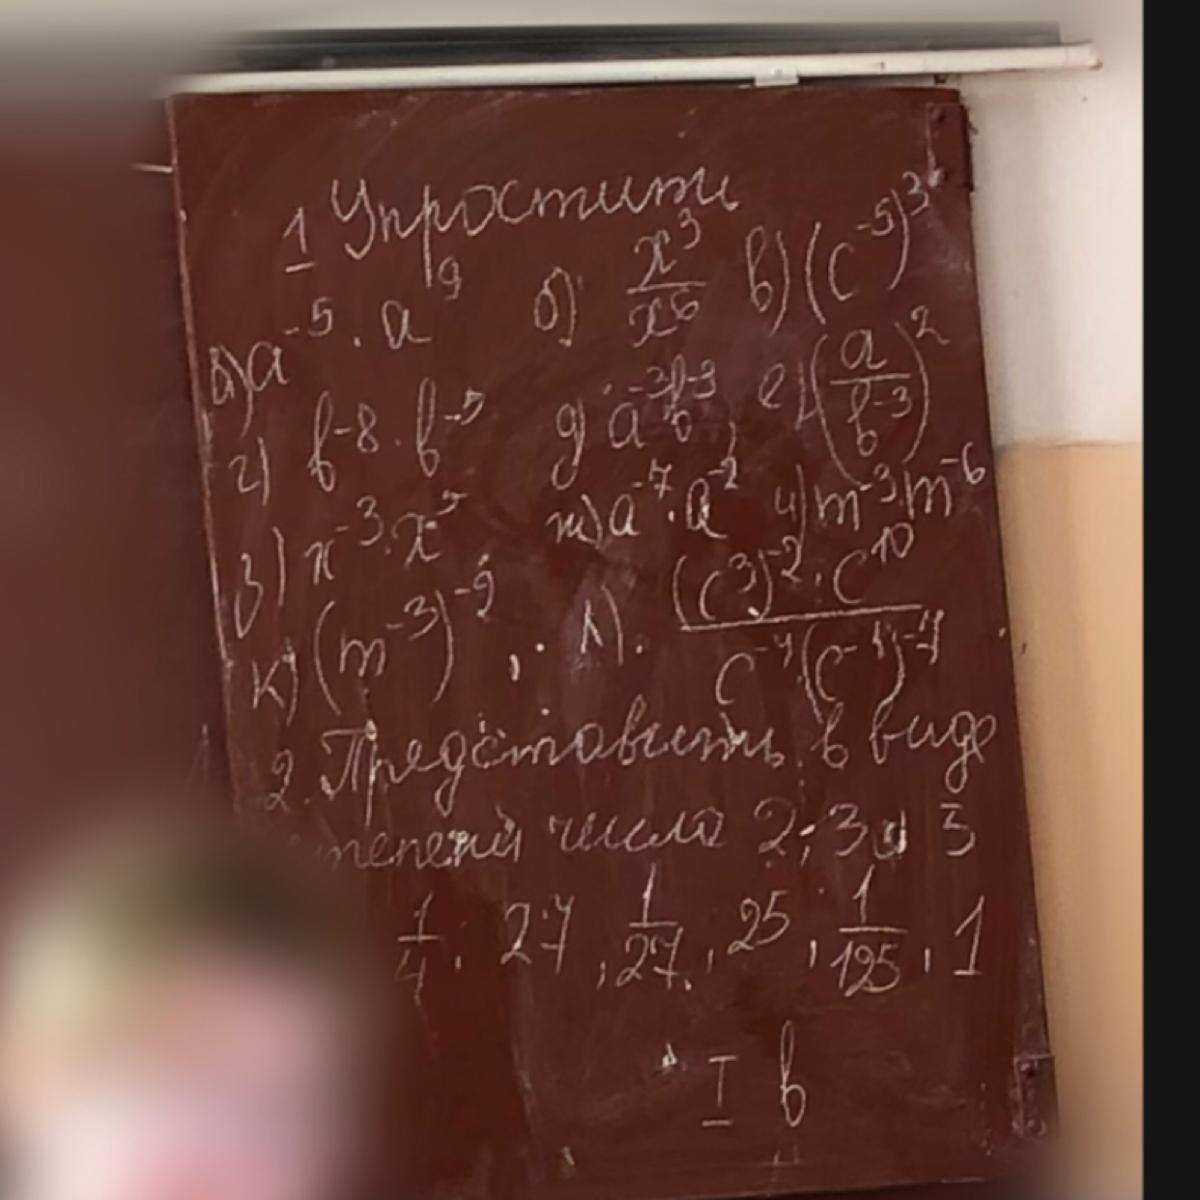 1 Упростить
а) a⁻⁵ · a⁹ б) x³/x⁶ в) (c⁻⁵)³
г) b⁻⁸ · b⁻⁵ д a⁻³b⁻³, е) (a/b⁻³)²
з) x⁻³ · x⁵ ж) a⁻⁷ · a⁻² и) m⁻³ m⁻⁶
к) (m⁻³)⁻² , л). (c³)⁻² · c¹⁰ / c⁻⁴ (c⁻¹)⁻⁴
2. Представить в виде
степени числа 2; 3 и 5
1/4, 27, 1/27, 25, 1/125, 1
I в